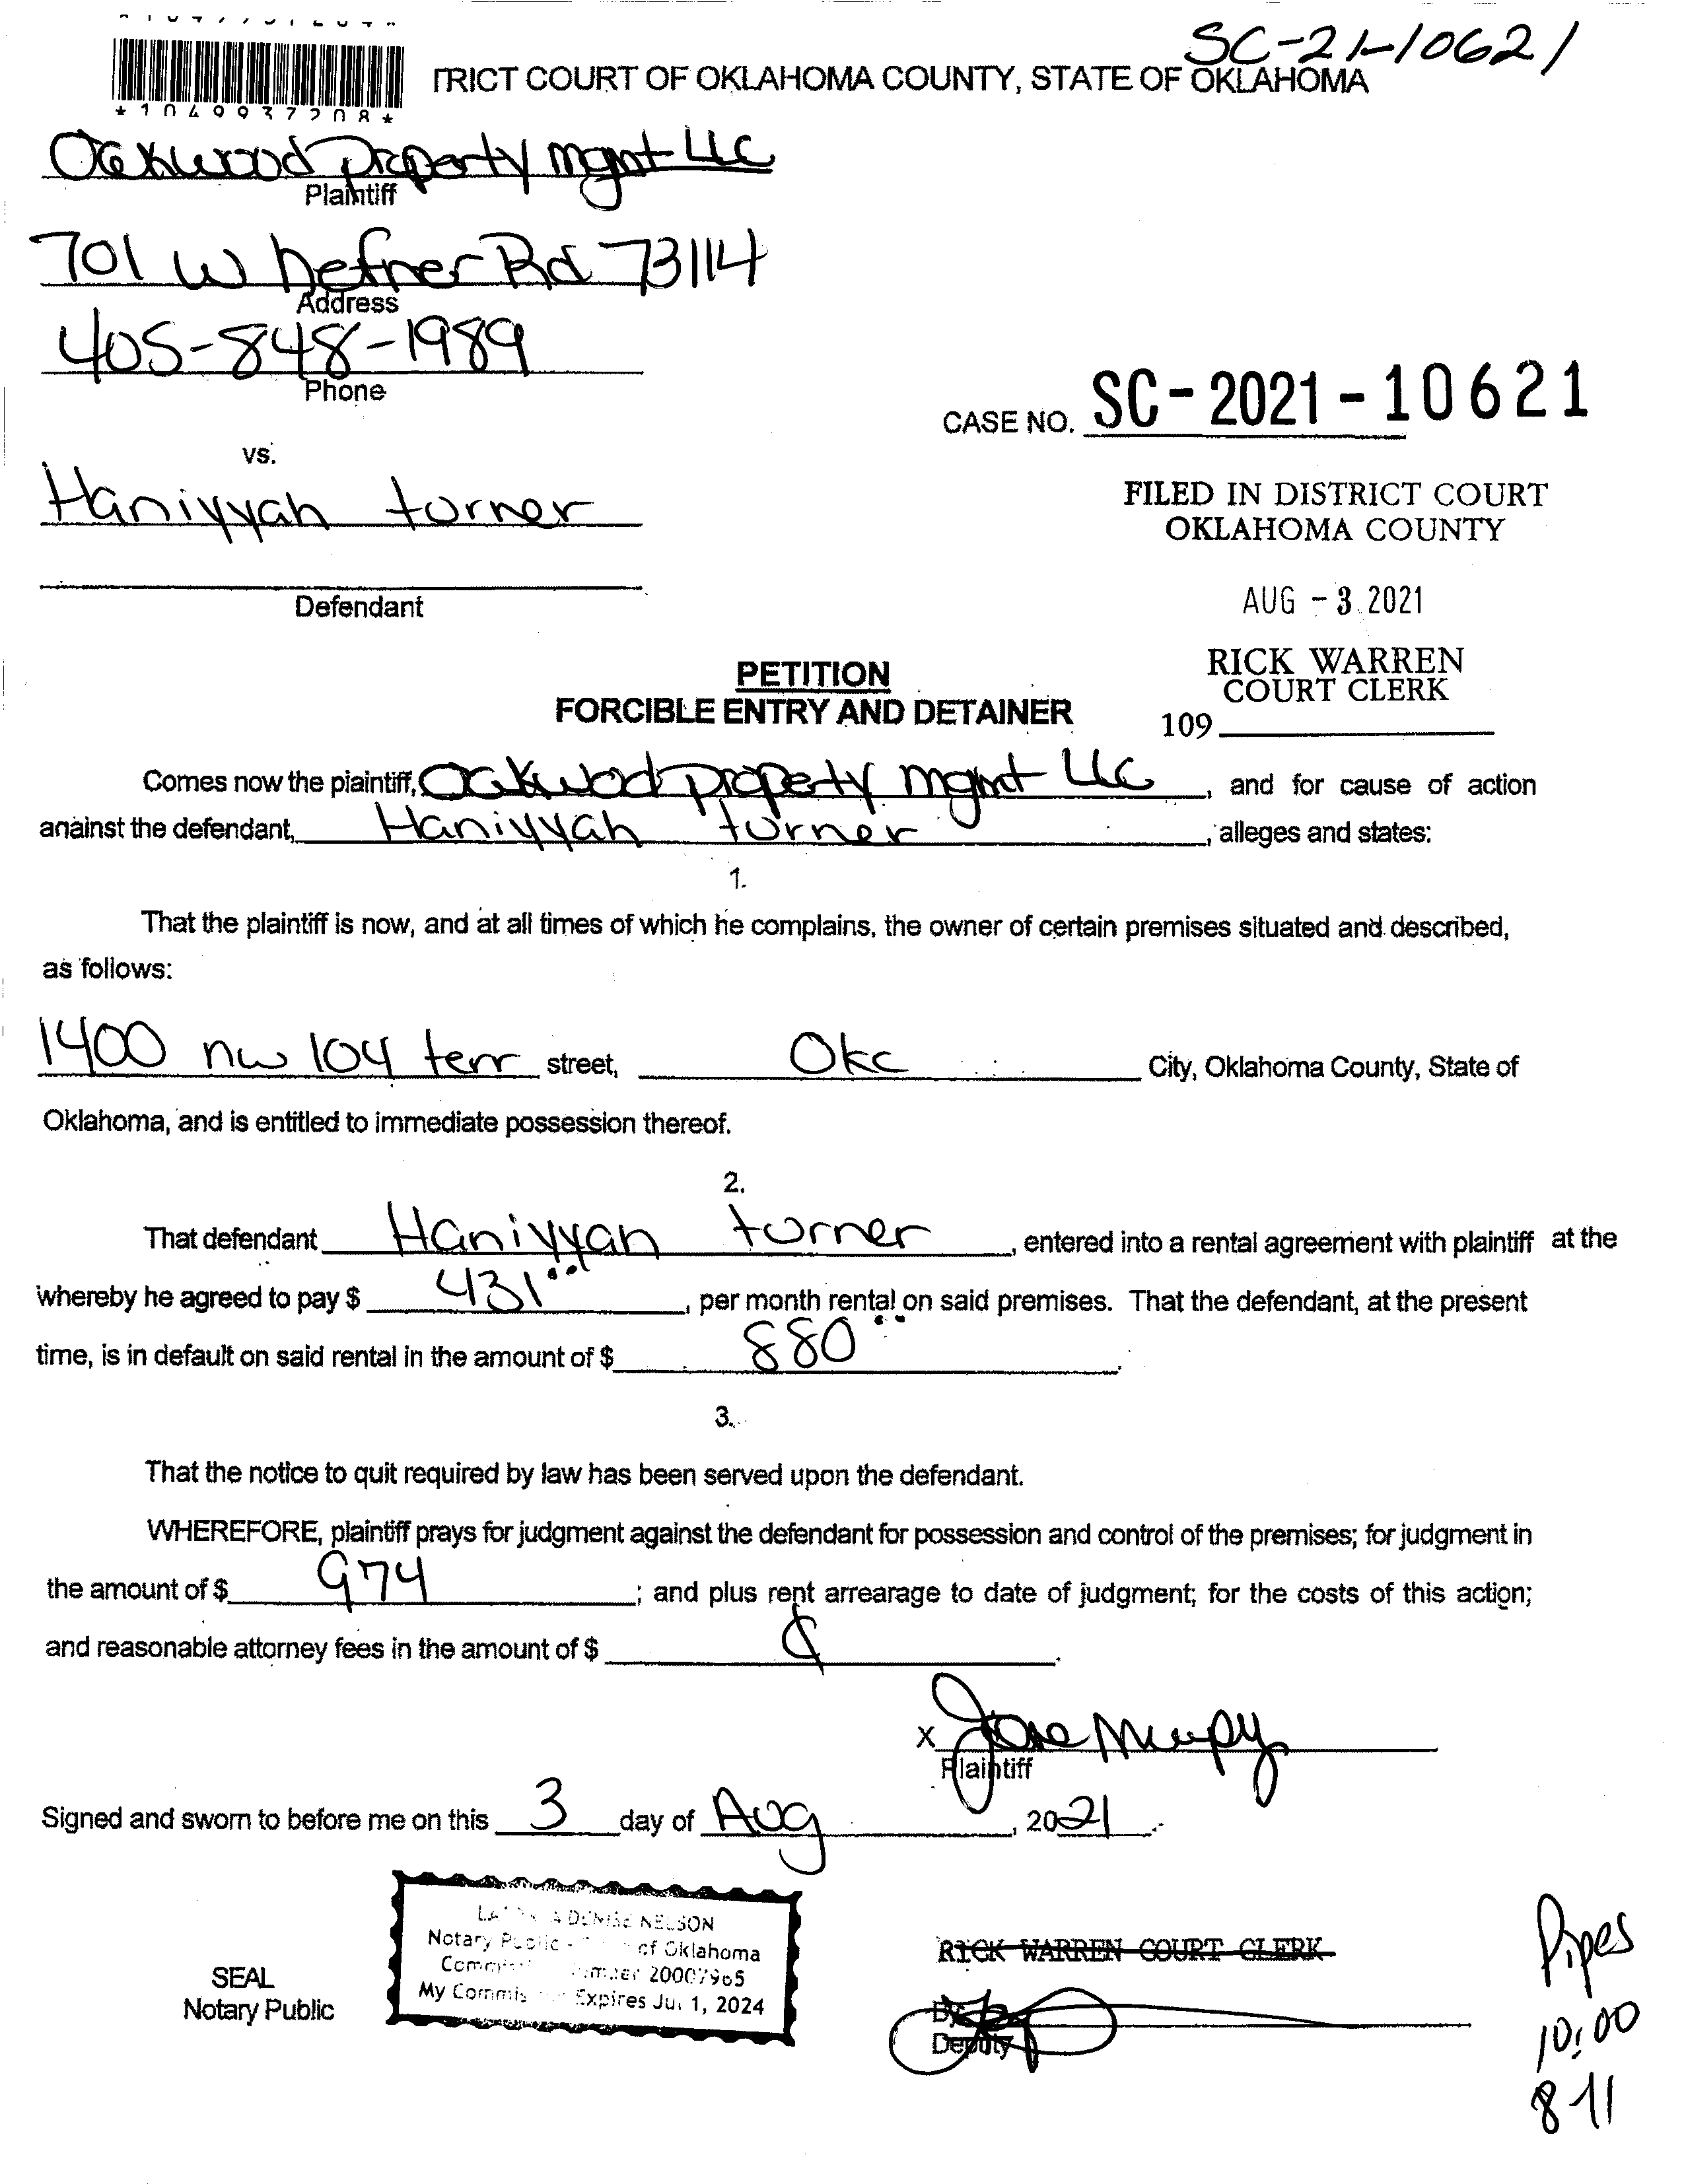 SC-21-10621
TRICT COURT OF OKLAHOMA COUNTY, STATE OF OKLAHOMA
*1049937208*
Oakwood property mgmt LLC
Plaintiff
701 W hefner Rd 73114
Address
405-848-1989
Phone
CASE NO. SC-2021-10621
vs.
Haniyyah turner
FILED IN DISTRICT COURT
OKLAHOMA COUNTY
Defendant
AUG -3 2021
PETITION
FORCIBLE ENTRY AND DETAINER
RICK WARREN
COURT CLERK
109
Comes now the plaintiff, Oakwood property mgmt LLC, and for cause of action
against the defendant, Haniyyah turner, alleges and states:
1.
That the plaintiff is now, and at all times of which he complains, the owner of certain premises situated and described,
as follows:
1400 nw 104 terr street, Okc City, Oklahoma County, State of
Oklahoma, and is entitled to immediate possession thereof.
2.
That defendant Haniyyah turner, entered into a rental agreement with plaintiff at the
whereby he agreed to pay $ 431.., per month rental on said premises. That the defendant, at the present
time, is in default on said rental in the amount of $ 880...
3.
That the notice to quit required by law has been served upon the defendant.
WHEREFORE, plaintiff prays for judgment against the defendant for possession and control of the premises; for judgment in
the amount of $ 974; and plus rent arrearage to date of judgment; for the costs of this action;
and reasonable attorney fees in the amount of $
X
Plaintiff
Signed and sworn to before me on this 3 day of Aug, 2021.
DENISE NELSON
Notary Public - of Oklahoma
20007965
My Commis Expires Jul 1, 2024
SEAL
Notary Public
RICK WARREN COURT CLERK
By
Deputy
Pipes
10:00
8-11